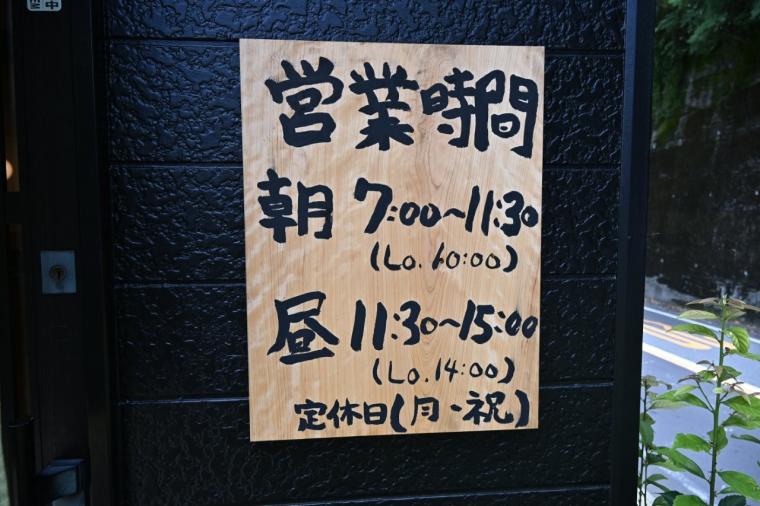 営業時間
朝 7:00~11:30
(Lo.10:00)
昼 11:30~15:00
(Lo.14:00)
定休日(月・祝)